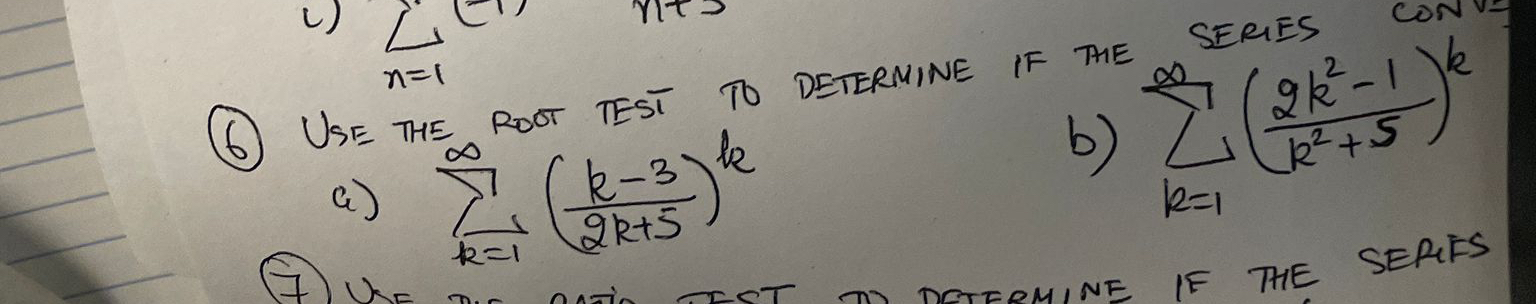 i) ∑ n=1 (-1) n+3
⑥ USE THE ROOT TEST TO DETERMINE IF THE SERIES
a) ∞ ∑ k=1 (k-3 / 2k+5)^k b) ∞ ∑ k=1 (2k²-1 / k²+5)^k
⑦ USE TEST TO DETERMINE IF THE SERIES